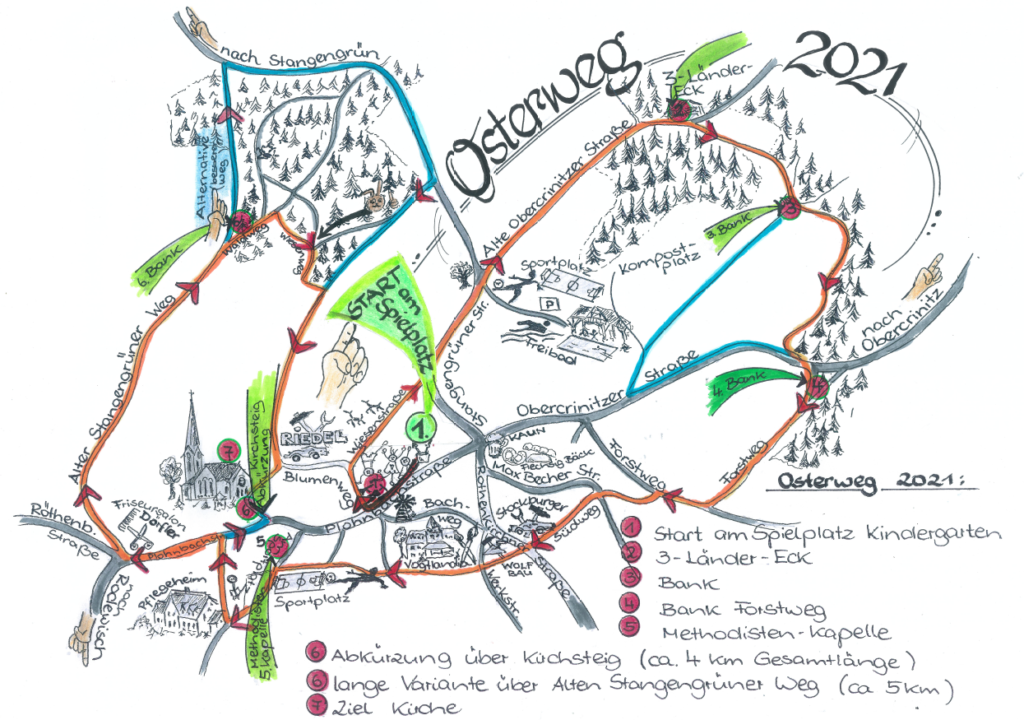 nach Stangengrün
Osterweg
2021
3-Länder-
Eck
2
Alte Obercrinitzer Straße
Alternative
(besserer
Weg)
6
Waldweg
Wiesenweg
6. Bank
3. Bank
3
Kompost-
platz
Sportplatz
P
Freibad
START am
Spielplatz
Alter Stangengrüner Weg
Stangengrüner Str.
nach
Obercrinitz
Obercrinitzer Straße
4. Bank
4
Forstweg
Forstweg
1.
Wiesenstraße
RIEDEL
Blumenweg
Kirchsteig
Abkürzung
7
6
KAUN
Fleischer Böck
Max Becher Str.
Plohnbachstraße
Bach-
weg
Stockburger
Südweg
Vogtlandia
WOLF
BAU
Werkstr.
Straße
Röthenb.
Straße
Friseursalon
Dörfer
Plohnbachstr.
5
Pflegeheim
nach
Rodewisch
Sportplatz
Methodisten
5. Kapelle
Osterweg 2021:
1 Start am Spielplatz Kindergarten
2 3-Länder-Eck
3 Bank
4 Bank Forstweg
5 Methodisten-Kapelle
6 Abkürzung über Kirchsteig (ca. 4 km Gesamtlänge)
6 lange Variante über Alten Stangengrüner Weg (ca 5km)
7 Ziel Kirche